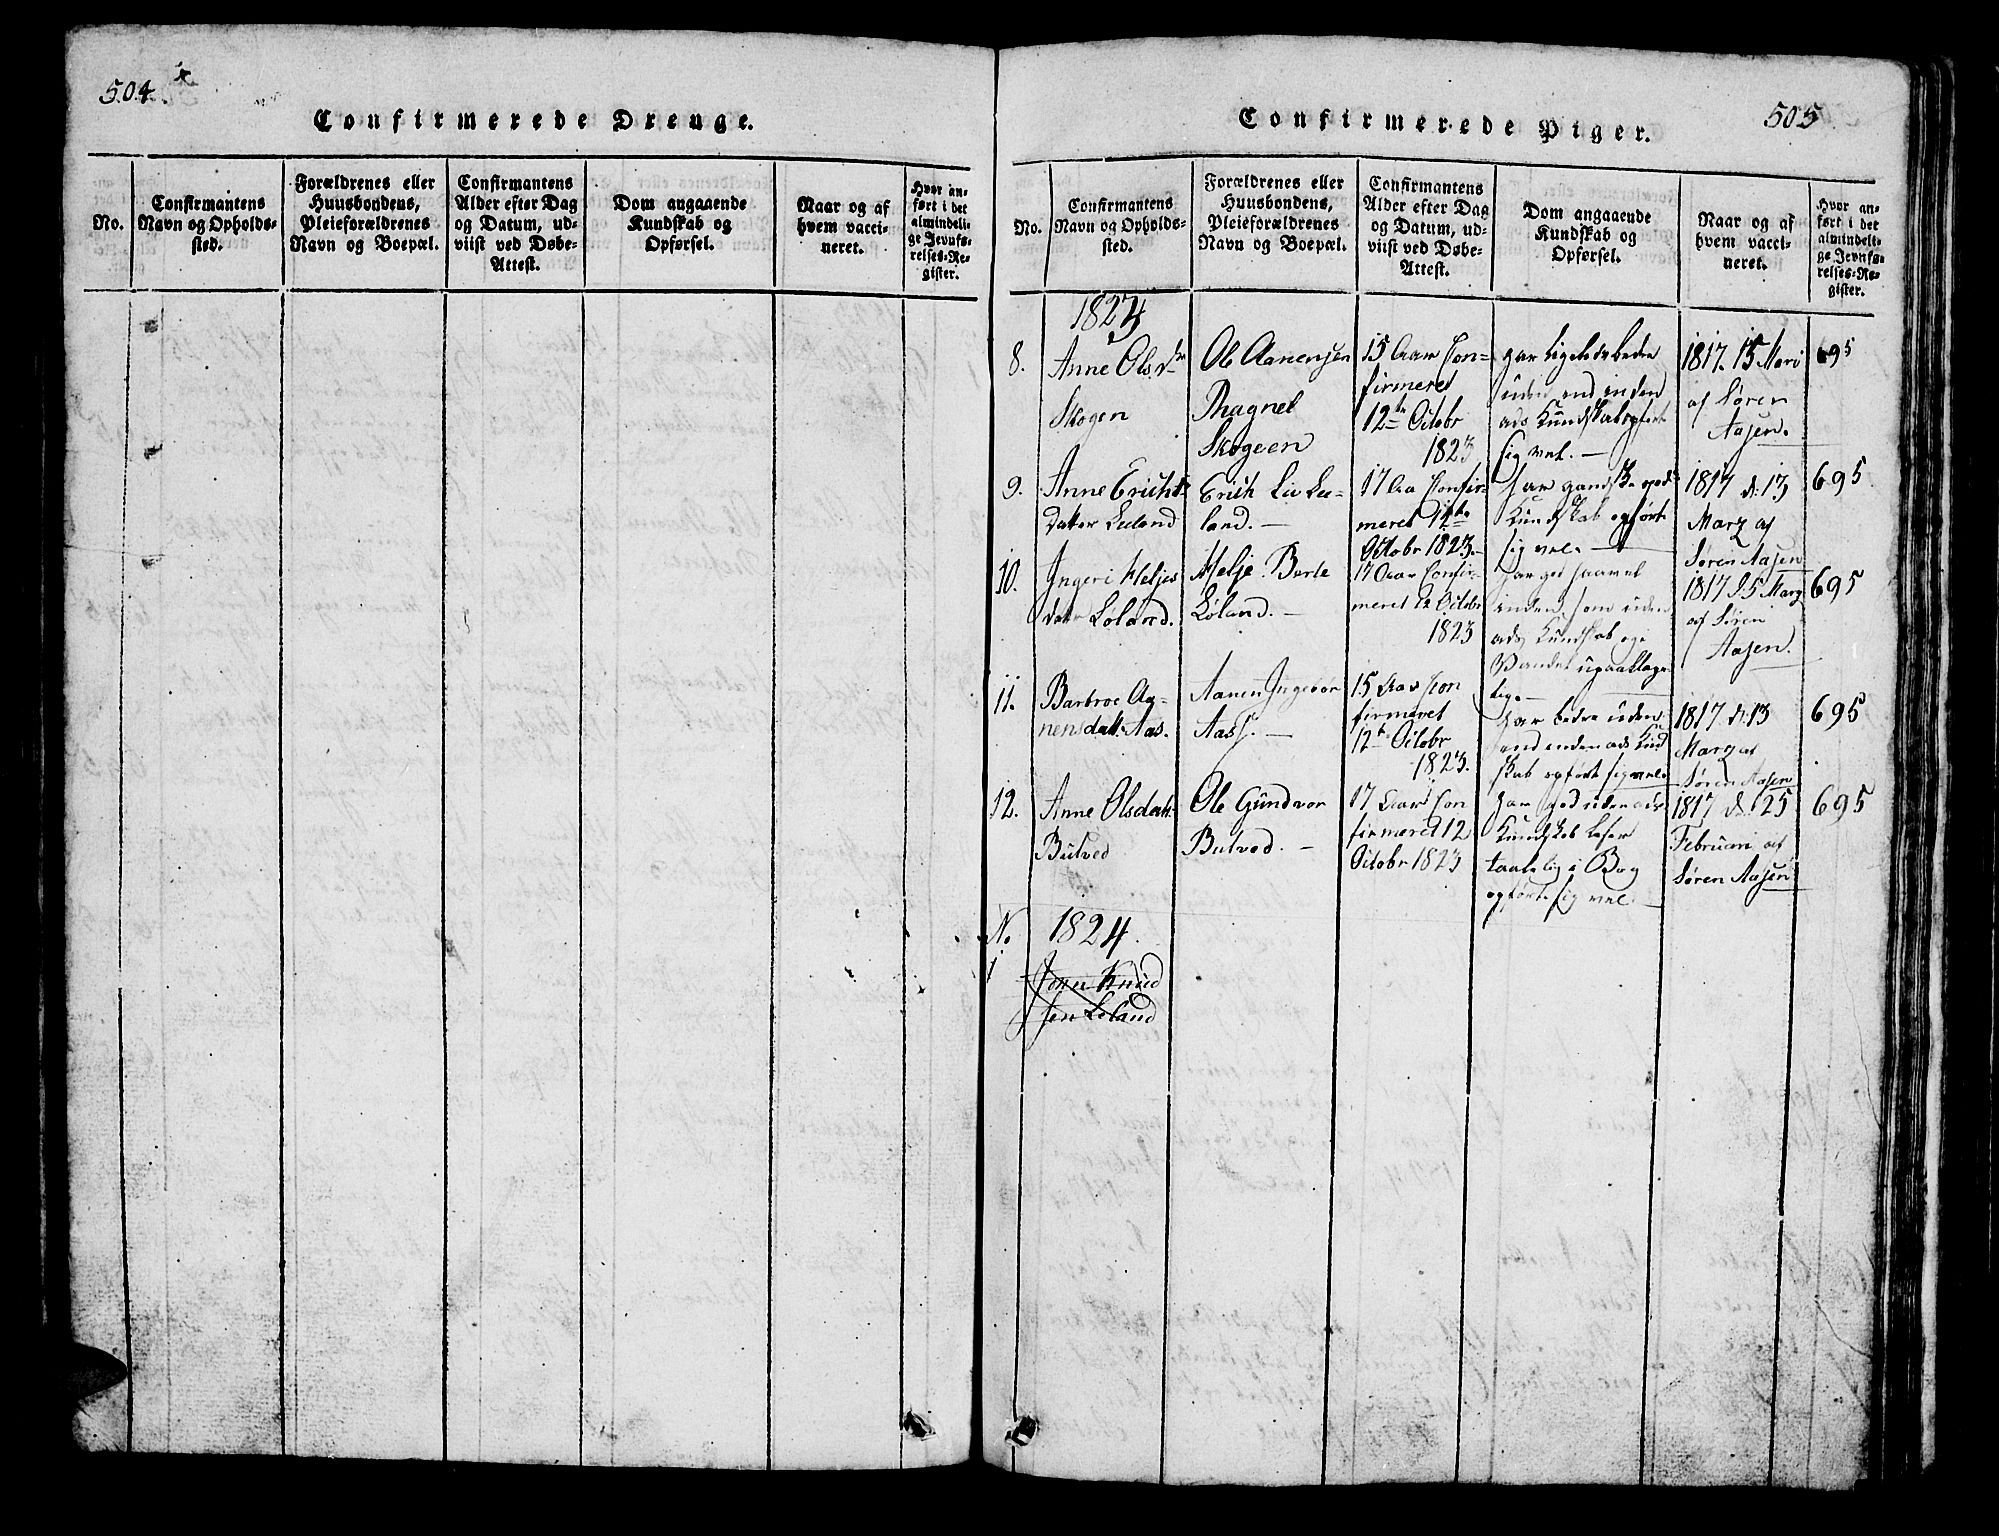 504.
Confirmerede Drenge.
No.
Confirmantens
Navn og Opholds-
sted.
Forældrenes eller
Huusbondens,
Pleieforældrenes
Navn og Boepæl.
Confirmantens
Alder efter Dag
og Datum, ud-
viist ved Døbe-
Attest.
Dom angaaende
Kundskab og
Opførsel.
Naar og af
hvem vacci-
neret.
Hvor an-
ført i det
almindeli-
ge Jevnfø-
relses-Re-
gister.
505
Confirmerede Piger.
No.
Confirmantens
Navn og Opholds-
sted.
Forældrenes eller
Huusbondens,
Pleieforældrenes
Navn og Boepæl.
Confirmantens
Alder efter Dag
og Datum, ud-
viist ved Døbe-
Attest.
Dom angaaende
Kundskab og
Opførsel.
Naar og af
hvem vacci-
neret.
Hvor an-
ført i det
almindeli-
ge Jevnfø-
relses-Re-
gister.
1823
8.
Anne Ols
Skogen
Ole Aanensen
Skogeen
15 Aar Con-
firmeret
12te Octobr
1823
har ligeledes bedre
uden end inden
ads Kundskab opført
sig vel. —
1817. 15 Mari
af Søren
Aasen.
695
9.
Anne Erichs
datter Leland
Erich Liv Le-
land. —
17 Aa Confir-
meret 12te
Octobr 1823.
har gandske god
Kundskab opført
sig vel. —
1817 d. 13
Marz af
Søren Aasen
695
10.
Ingeri Heljes
datr Løland.
Helje Berte
Løland. —
17 Aar Confir-
meret 12 Octobr
1823
har god saavel
inden som uden
ads Kundskab og i
Vandel upaaklage-
lig. —
1817 25 Marz
af Søren
Aasen.
695
11.
Barbroe Aa-
nensdatt. Aas.
Aanen Ingebor
Aas. —
15 Aar Con
firmeret
12te Octobr
1823.
har bedre uden
end inden ads Kund
skab opført sig vel.
1817 d. 13
Marz af
Søren Aasen
695
12.
Anne Olsdatt.
Butved
Ole Gundvor
Butved. —
17 Aar Con
firmeret 12
Octobr 1823
har god uden ads
Kundskab læser
taalelig i Bog
opførte sig vel. —
1817 d. 25
Februari af
Søren Aasen
695
N.
1824.
1
Knud
sen Leland